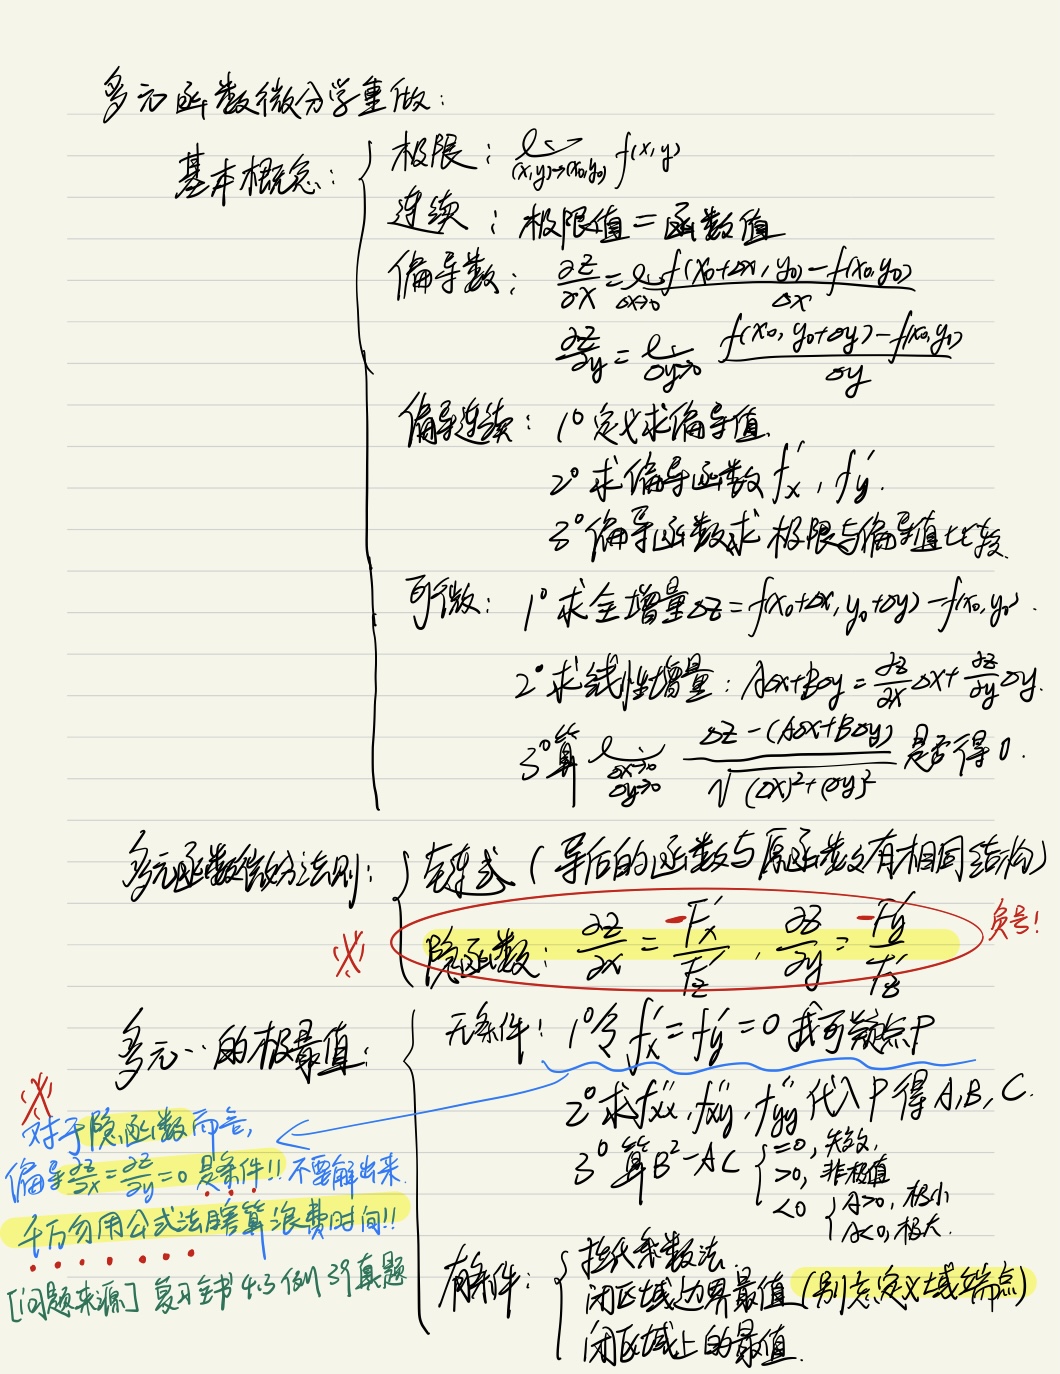 多元函数微分学重做:
基本概念: 极限: lim (x,y)→(x₀,y₀) f(x,y)
连续: 极限值=函数值
偏导数: ∂z/∂x = lim Δx→0 [f(x₀+Δx, y₀)-f(x₀,y₀)]/Δx
∂z/∂y = lim Δy→0 [f(x₀, y₀+Δy)-f(x₀,y₀)]/Δy
偏导连续: 1° 定义求偏导值.
2° 求偏导函数 f'x, f'y.
3° 偏导函数求极限与偏导值比较.
可微: 1° 求全增量Δz=f(x₀+Δx, y₀+Δy)-f(x₀,y₀).
2° 求线性增量: AΔx+BΔy = ∂z/∂x Δx + ∂z/∂y Δy.
3° 算 lim Δx→0 Δy→0 [Δz-(AΔx+BΔy)]/√((Δx)²+(Δy)²) 是否得0.
多元函数微分法则: 链式 (导后的函数与原函数有相同结构)
※ 隐函数: ∂z/∂x = -F'x/F'z, ∂z/∂y = -F'y/F'z 负号!
多元…的极最值: 无条件! 1° 令 f'x=f'y=0 找可疑点P
2° 求f''xx, f''xy, f''yy 代入P得A,B,C.
3° 算B²-AC =0, 失效,
>0, 非极值
<0 A>0, 极小
A<0, 极大.
※
对于隐函数而言,
偏导 ∂z/∂x=∂z/∂y=0 是条件!! 不要解出来.
千万勿用公式法瞎算浪费时间!!
[问题来源] 复习全书 4.3 例39真题
有条件: 拉氏乘数法.
闭区域边界最值 (别忘定义域端点)
闭区域上的最值.